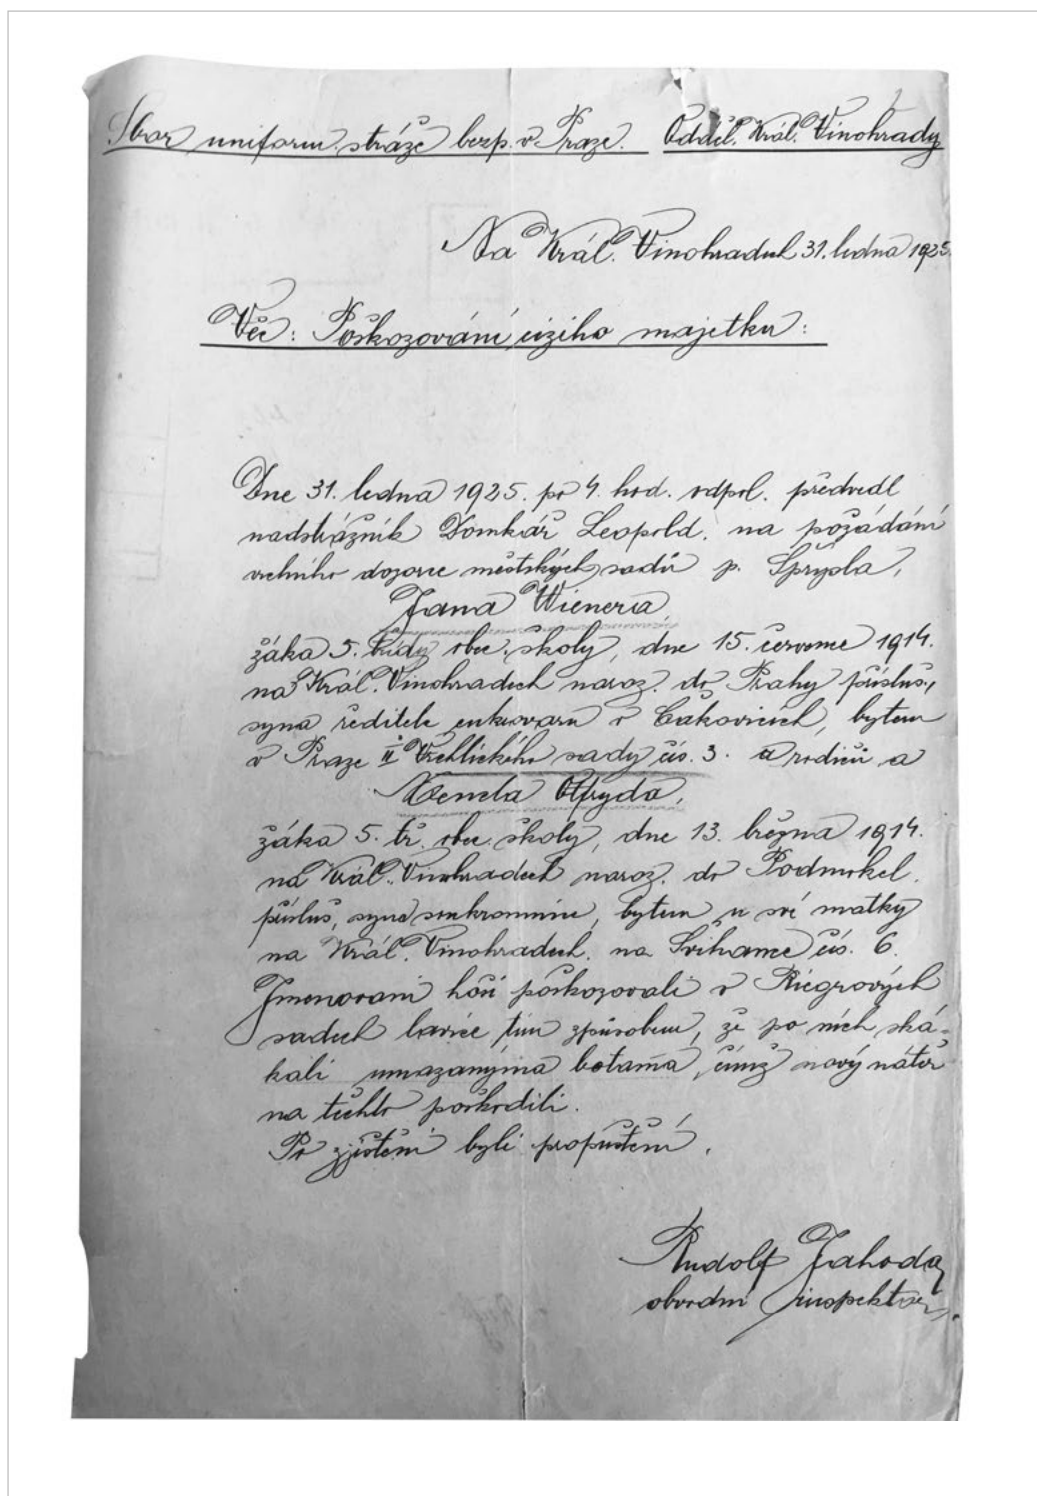 Sbor uniform. stráže bezp. v Praze. Odděl. Král. Vinohrady
Na Král. Vinohradech 31. ledna 1925.
Věc: Poškozování cizího majetku:
Dne 31. ledna 1925. po 4. hod. odpol. předvedl
nadstrážník Domkář Leopold, na požádání
vrchního dozorce městských sadů p. Šprysla,
Jana Wienera
žáka 5. třídy obec. školy, dne 15. července 1914.
na Král. Vinohradech naroz. do Prahy přísluš.,
syna ředitele cukrovaru v Čakovicích, bytem
v Praze II Vrchlického sady čís. 3. u rodičů a
Otfryda,
žáka 5. tř. obec. školy, dne 13. března 1914.
na Král. Vinohradech naroz. do Podmokel
přísluš, syna soukromnice, bytem u své matky
na Král. Vinohradech, na Švihance čís. 6.
Jmenovaní hoši poškozovali v Riegrových
sadech lavice tím způsobem, že po nich ská-
kali umazanýma botama, čímž nový nátěr
na těchto poškodili.
Po zjištění byli propuštěni.
Rudolf Jahoda
obvodní inspektor.